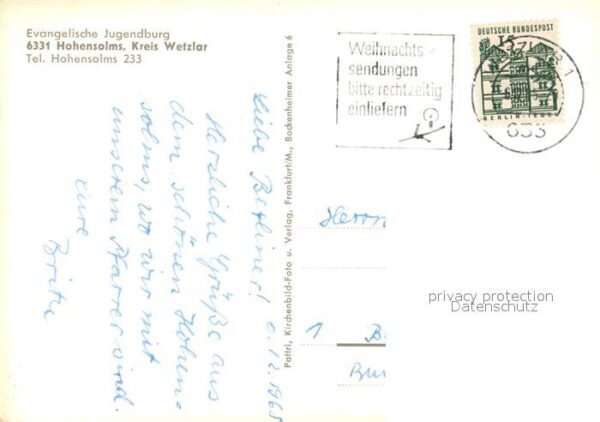 Evangelische Jugendburg
6331 Hohensolms, Kreis Wetzlar
Tel. Hohensolms 233
Pattri, Kirchenbild-Foto u. Verlag, Frankfurt/M., Bockenheimer Anlage 6
Weihnachts-
sendungen
bitte rechtzeitig
einliefern
DEUTSCHE BUNDESPOST
15
BERLIN-TEGEL
633
1
Liebe Berliner!
12.1965
Herzliche Grüße aus
dem schönen Hohen-
solms, wo wir mit
unserem Pfarrer sind.
Eure
Herrn
1 B
privacy protection
Datenschutz